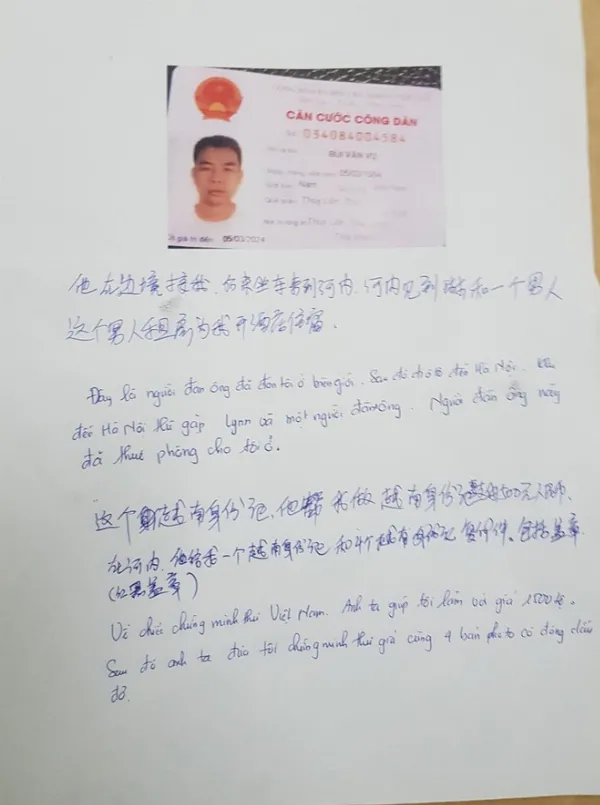 CĂN CƯỚC CÔNG DÂN
034084004584
BÙI VĂN VỤ
Nam
05/03/2024
他在边境接我, 后来坐车到河内, 河内见到 和一个男人
这个男人租房为我开酒店住宿.
Đây là người đàn ông đã đón tôi ở biên giới. Sau đó đi ô tô đến Hà Nội. Khi
đến Hà Nội thì gặp Lynn và một người đàn ông. Người đàn ông này
đã thuê phòng cho tôi ở.
这个 越南身份证, 他帮我做越南身份证 1500元人民币.
在河内, 他给我一个越南身份证 和4个越南身份证复印件, 包括盖章
(红 盖章)
Về chiếc chứng minh thư Việt Nam. Anh ta giúp tôi làm với giá 1500 tệ.
Sau đó anh ta đưa tôi chứng minh thư giả cùng 4 bản photo có đóng dấu
đỏ.